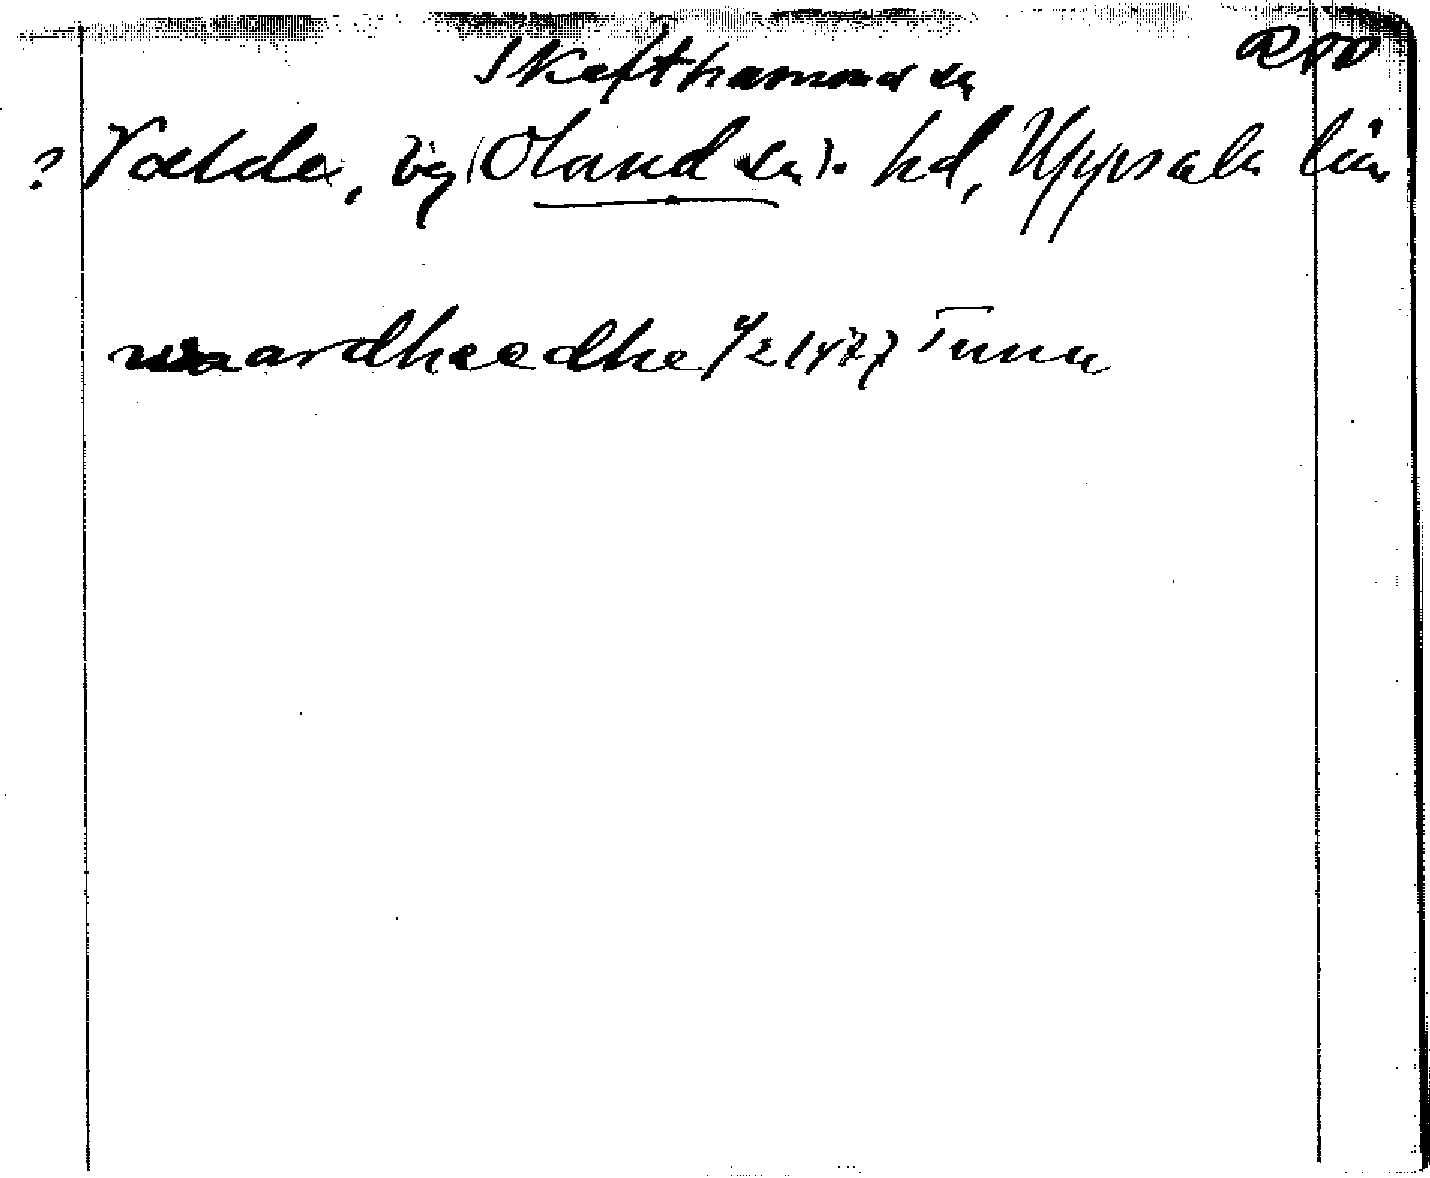 Skefthammar sn
? Valda, by (Oland sn). hd, Uppsala län
waardheedhe 4/2 1477 Tuna